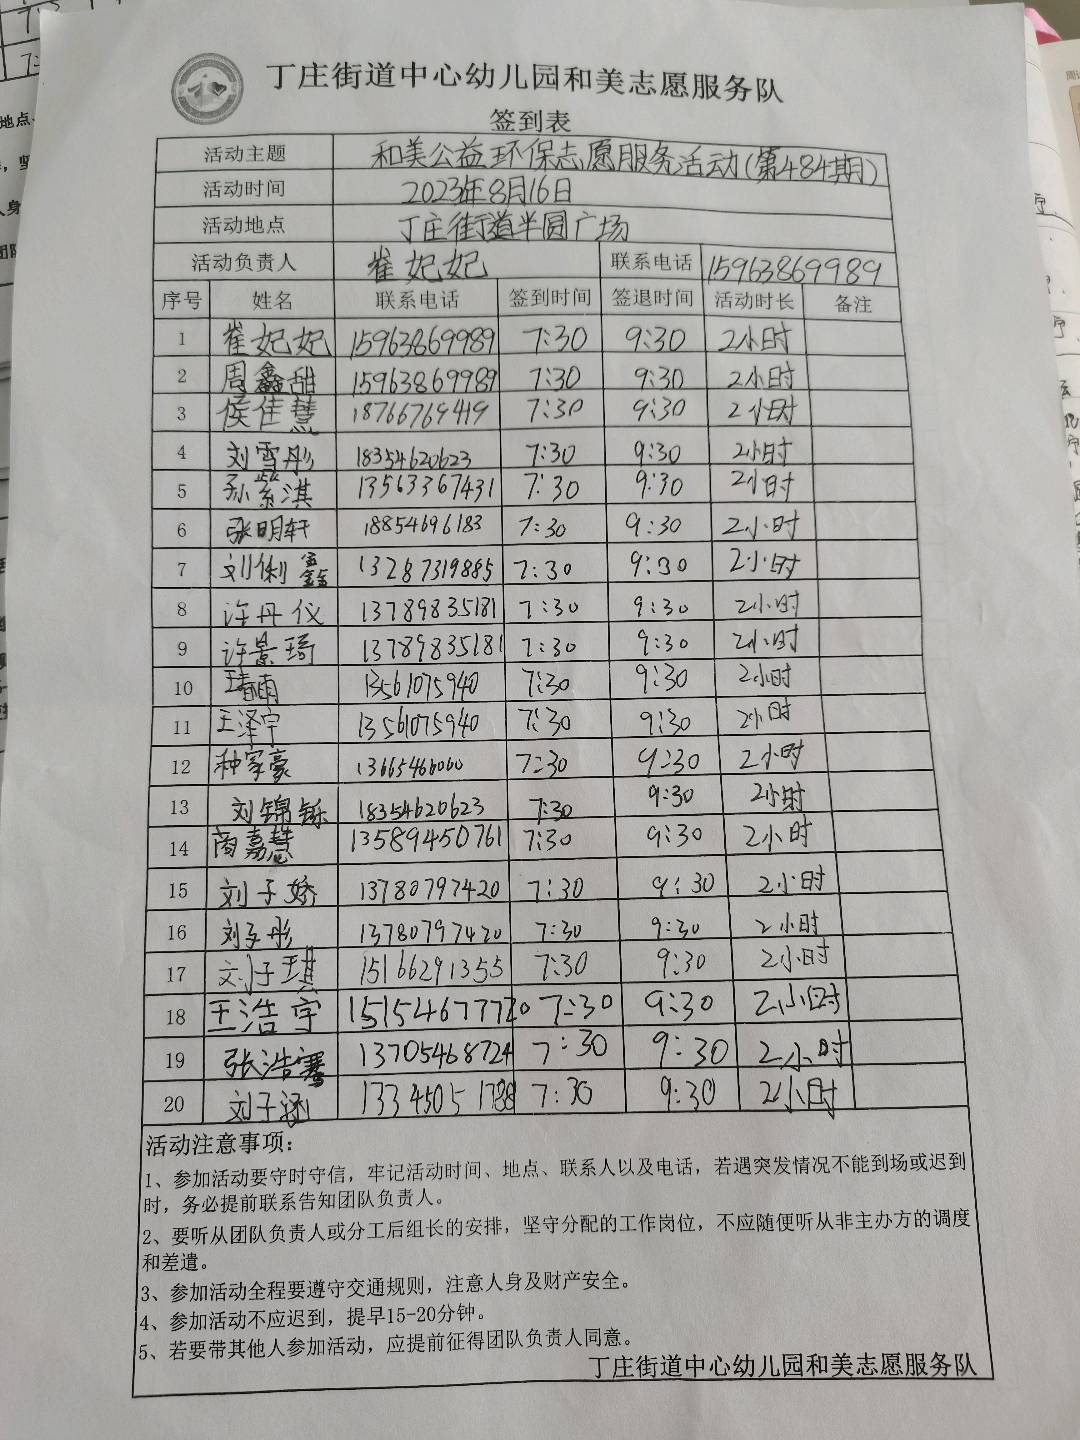 丁庄街道中心幼儿园和美志愿服务队
签到表
活动主题 和美公益环保志愿服务活动(第484期)
活动时间 2023年8月16日
活动地点 丁庄街道半圆广场
活动负责人 崔妃妃 联系电话 15963869989
序号 姓名 联系电话 签到时间 签退时间 活动时长 备注
1 崔妃妃 15963869989 7:30 9:30 2小时
2 周鑫甜 15963869989 7:30 9:30 2小时
3 侯佳慧 18766769419 7:30 9:30 2小时
4 刘雪彤 18354620623 7:30 9:30 2小时
5 孙紫淇 13563367431 7:30 9:30 2小时
6 张明轩 18854696183 7:30 9:30 2小时
7 刘俐鑫 13287319885 7:30 9:30 2小时
8 许丹仪 13789835181 7:30 9:30 2小时
9 许景琦 13789835181 7:30 9:30 2小时
10 13561075940 7:30 9:30 2小时
11 王泽宇 13561075940 7:30 9:30 2小时
12 种家豪 13665466060 7:30 9:30 2小时
13 刘锦铄 18354620623 7:30 9:30 2小时
14 商嘉慧 13589450761 7:30 9:30 2小时
15 刘子娇 13780797420 7:30 9:30 2小时
16 刘子彤 13780797420 7:30 9:30 2小时
17 刘子琪 15166291355 7:30 9:30 2小时
18 王浩宇 15154677720 7:30 9:30 2小时
19 张浩骞 13705468724 7:30 9:30 2小时
20 刘子涵 13345051788 7:30 9:30 2小时
活动注意事项:
1、参加活动要守时守信，牢记活动时间、地点、联系人以及电话，若遇突发情况不能到场或迟到
时，务必提前联系告知团队负责人。
2、要听从团队负责人或分工后组长的安排，坚守分配的工作岗位，不应随便听从非主办方的调度
和差遣。
3、参加活动全程要遵守交通规则，注意人身及财产安全。
4、参加活动不应迟到，提早15-20分钟。
5、若要带其他人参加活动，应提前征得团队负责人同意。
丁庄街道中心幼儿园和美志愿服务队